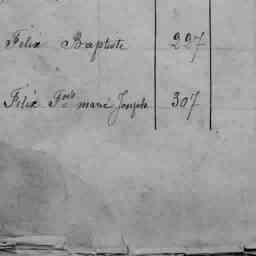 Felix Baptiste 227
Felix Fois marie Joseph 307